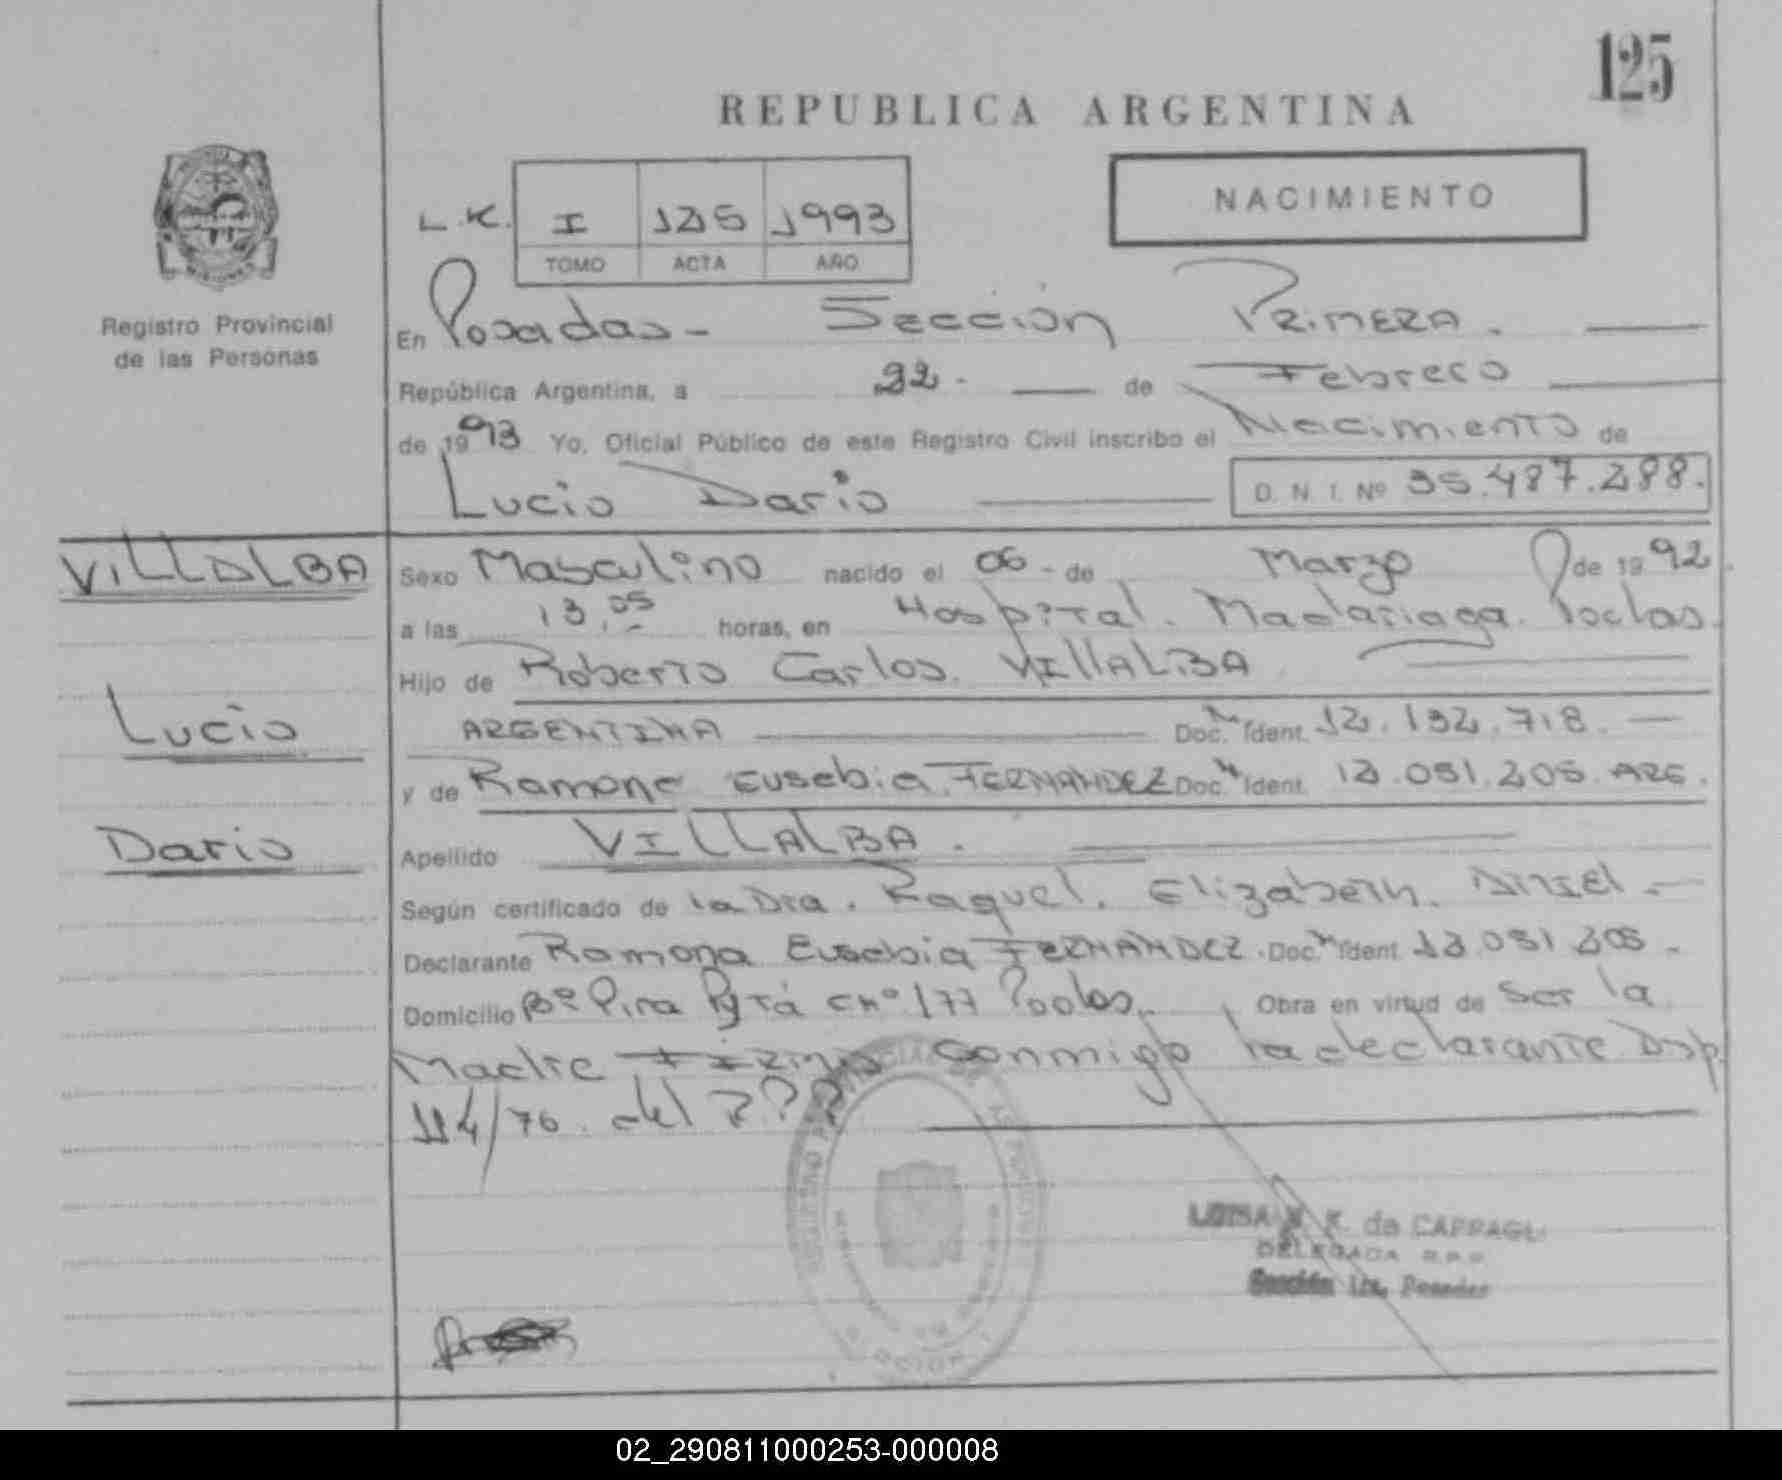 125
REPUBLICA ARGENTINA
NACIMIENTO
L.K. I 125 1993
TOMO ACTA AÑO
Registro Provincial
de las Personas
En Posadas - Sección Primera.
República Argentina, a 22 - de Febrero
de 1993 Yo, Oficial Público de este Registro Civil inscribo el Nacimiento de
Lucio Dario D. N. I. Nº 35.487.288.
VILLALBA
Sexo Masculino nacido el 06 - de Marzo de 1992
a las 13,05 horas, en Hospital. Madariaga. Posdas.
Hijo de Roberto Carlos. VILLALBA
Lucio
ARGENTINA Doc. Ident. 12.132.718.
y de Ramona Eusebia FERNANDEZ Doc. Ident. 12.051.205. ARG.
Dario
Apellido VILLALBA.
Según certificado de la Dra. Raquel. Elizabeth.
Declarante Ramona Eusebia FERNANDEZ. Doc. Ident. 12.051.205.
Domicilio Bº Pira Pytá cnº 177 Posdas. Obra en virtud de ser la
Madre Firma conmigo la declarante Disp.
114/76. del
de
DELEGADA R.P.P.
Sección 1ra. Posadas
02_290811000253-000008